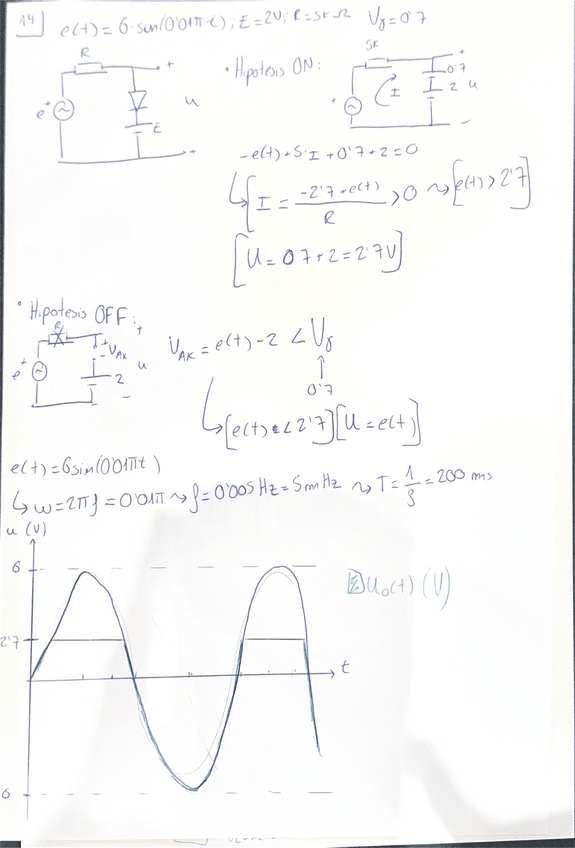 14 e(t) = 6·sen(0'01π t); E = 2V; R = 5kΩ Vγ = 0'7
R
+
e
+
u
E
+
• Hipotesis ON:
5k
+
0.7
2
u
I
+
-
-e(t)+5·I+0'7+2=0
I = -2'7+e(t) / R > 0 ⇝ [e(t) > 2'7]
[U = 0'7+2 = 2'7V]
• Hipotesis OFF:
R
+
+
VAK
-
e
+
u
2
-
VAK = e(t) - 2 < Vγ
↑
0'7
[e(t) < 2'7] [U = e(t)]
e(t) = 6sin(0'01πt)
↳ ω = 2πf = 0'01π ⇝ f = 0'005 Hz = 5mHz ⇝ T = 1/f = 200 ms
u (V)
6
2'7
t
6
U₀(t) (V)